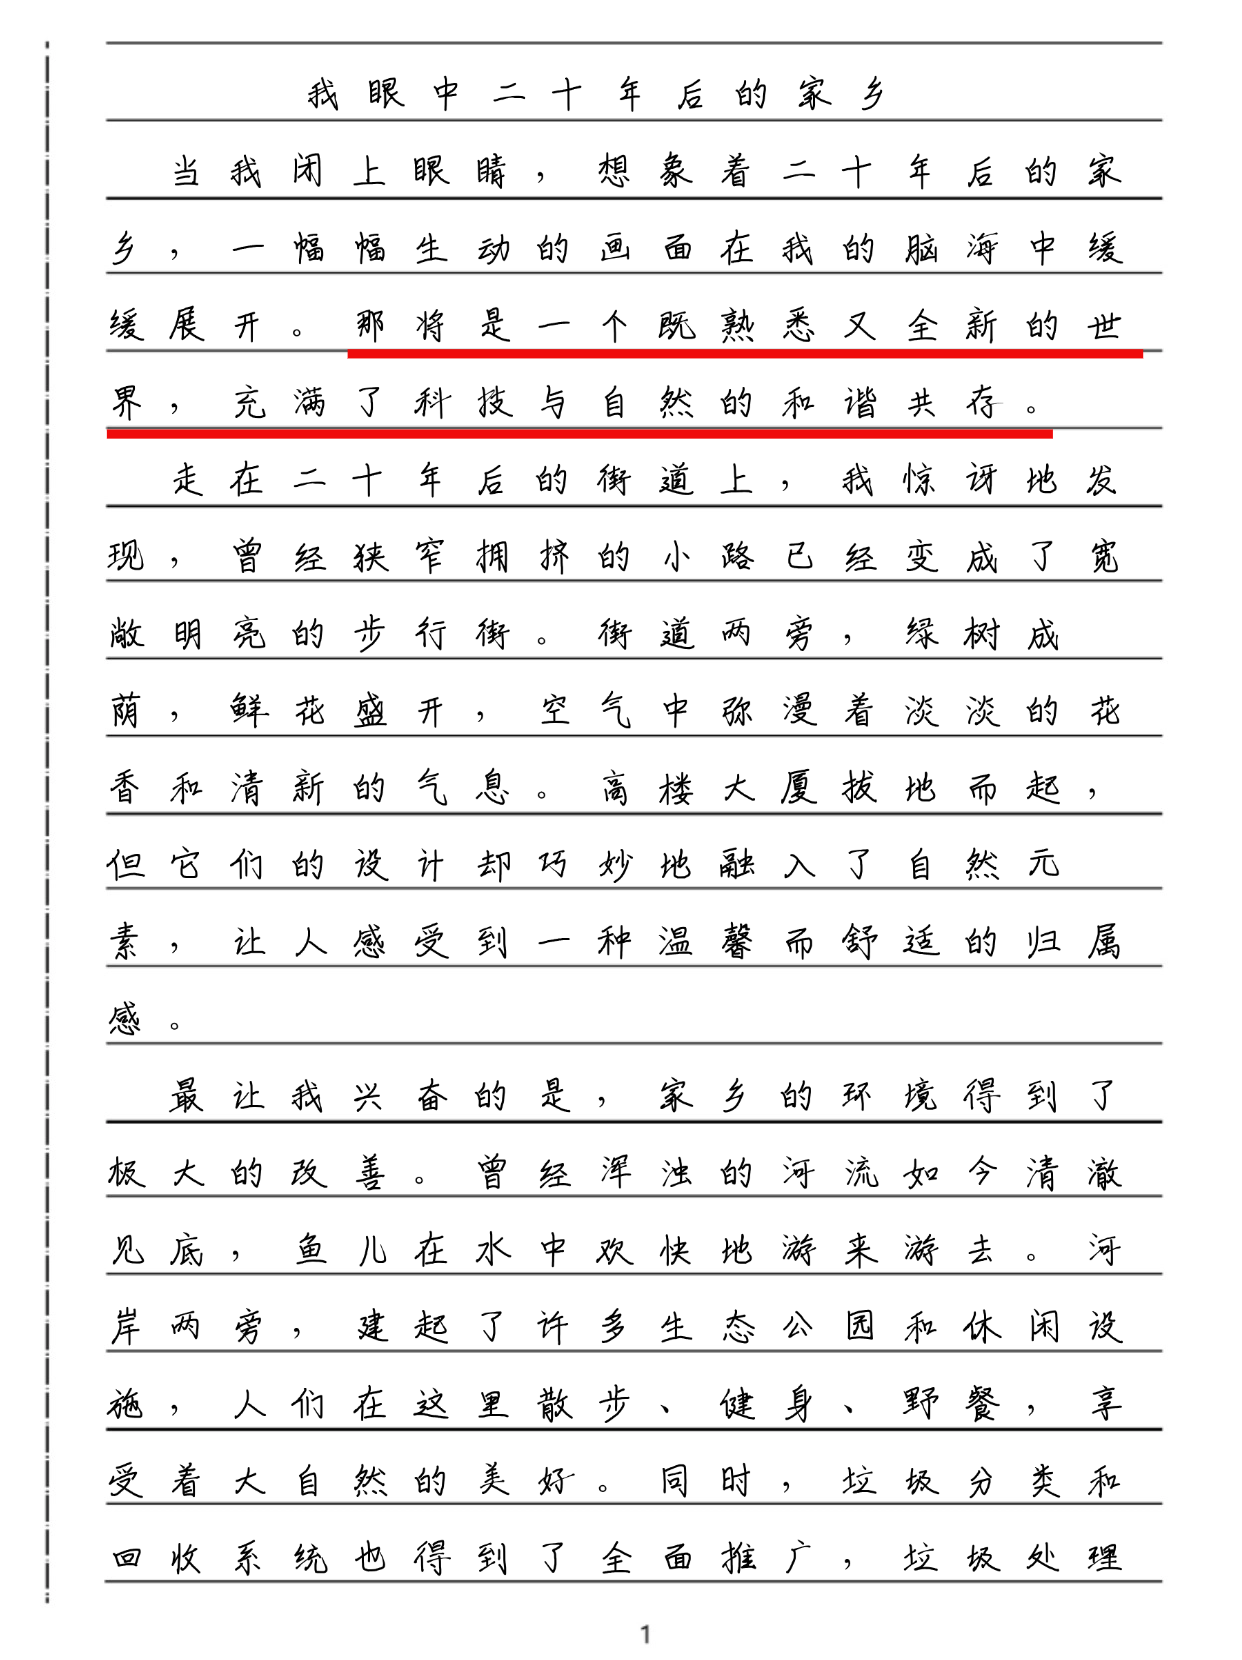 我眼中二十年后的家乡
当我闭上眼睛，想象着二十年后的家
乡，一幅幅生动的画面在我的脑海中缓
缓展开。那将是一个既熟悉又全新的世
界，充满了科技与自然的和谐共存。
走在二十年后的街道上，我惊讶地发
现，曾经狭窄拥挤的小路已经变成了宽
敞明亮的步行街。街道两旁，绿树成
荫，鲜花盛开，空气中弥漫着淡淡的花
香和清新的气息。高楼大厦拔地而起，
但它们的设计却巧妙地融入了自然元
素，让人感受到一种温馨而舒适的归属
感。
最让我兴奋的是，家乡的环境得到了
极大的改善。曾经浑浊的河流如今清澈
见底，鱼儿在水中欢快地游来游去。河
岸两旁，建起了许多生态公园和休闲设
施，人们在这里散步、健身、野餐，享
受着大自然的美好。同时，垃圾分类和
回收系统也得到了全面推广，垃圾处理
1